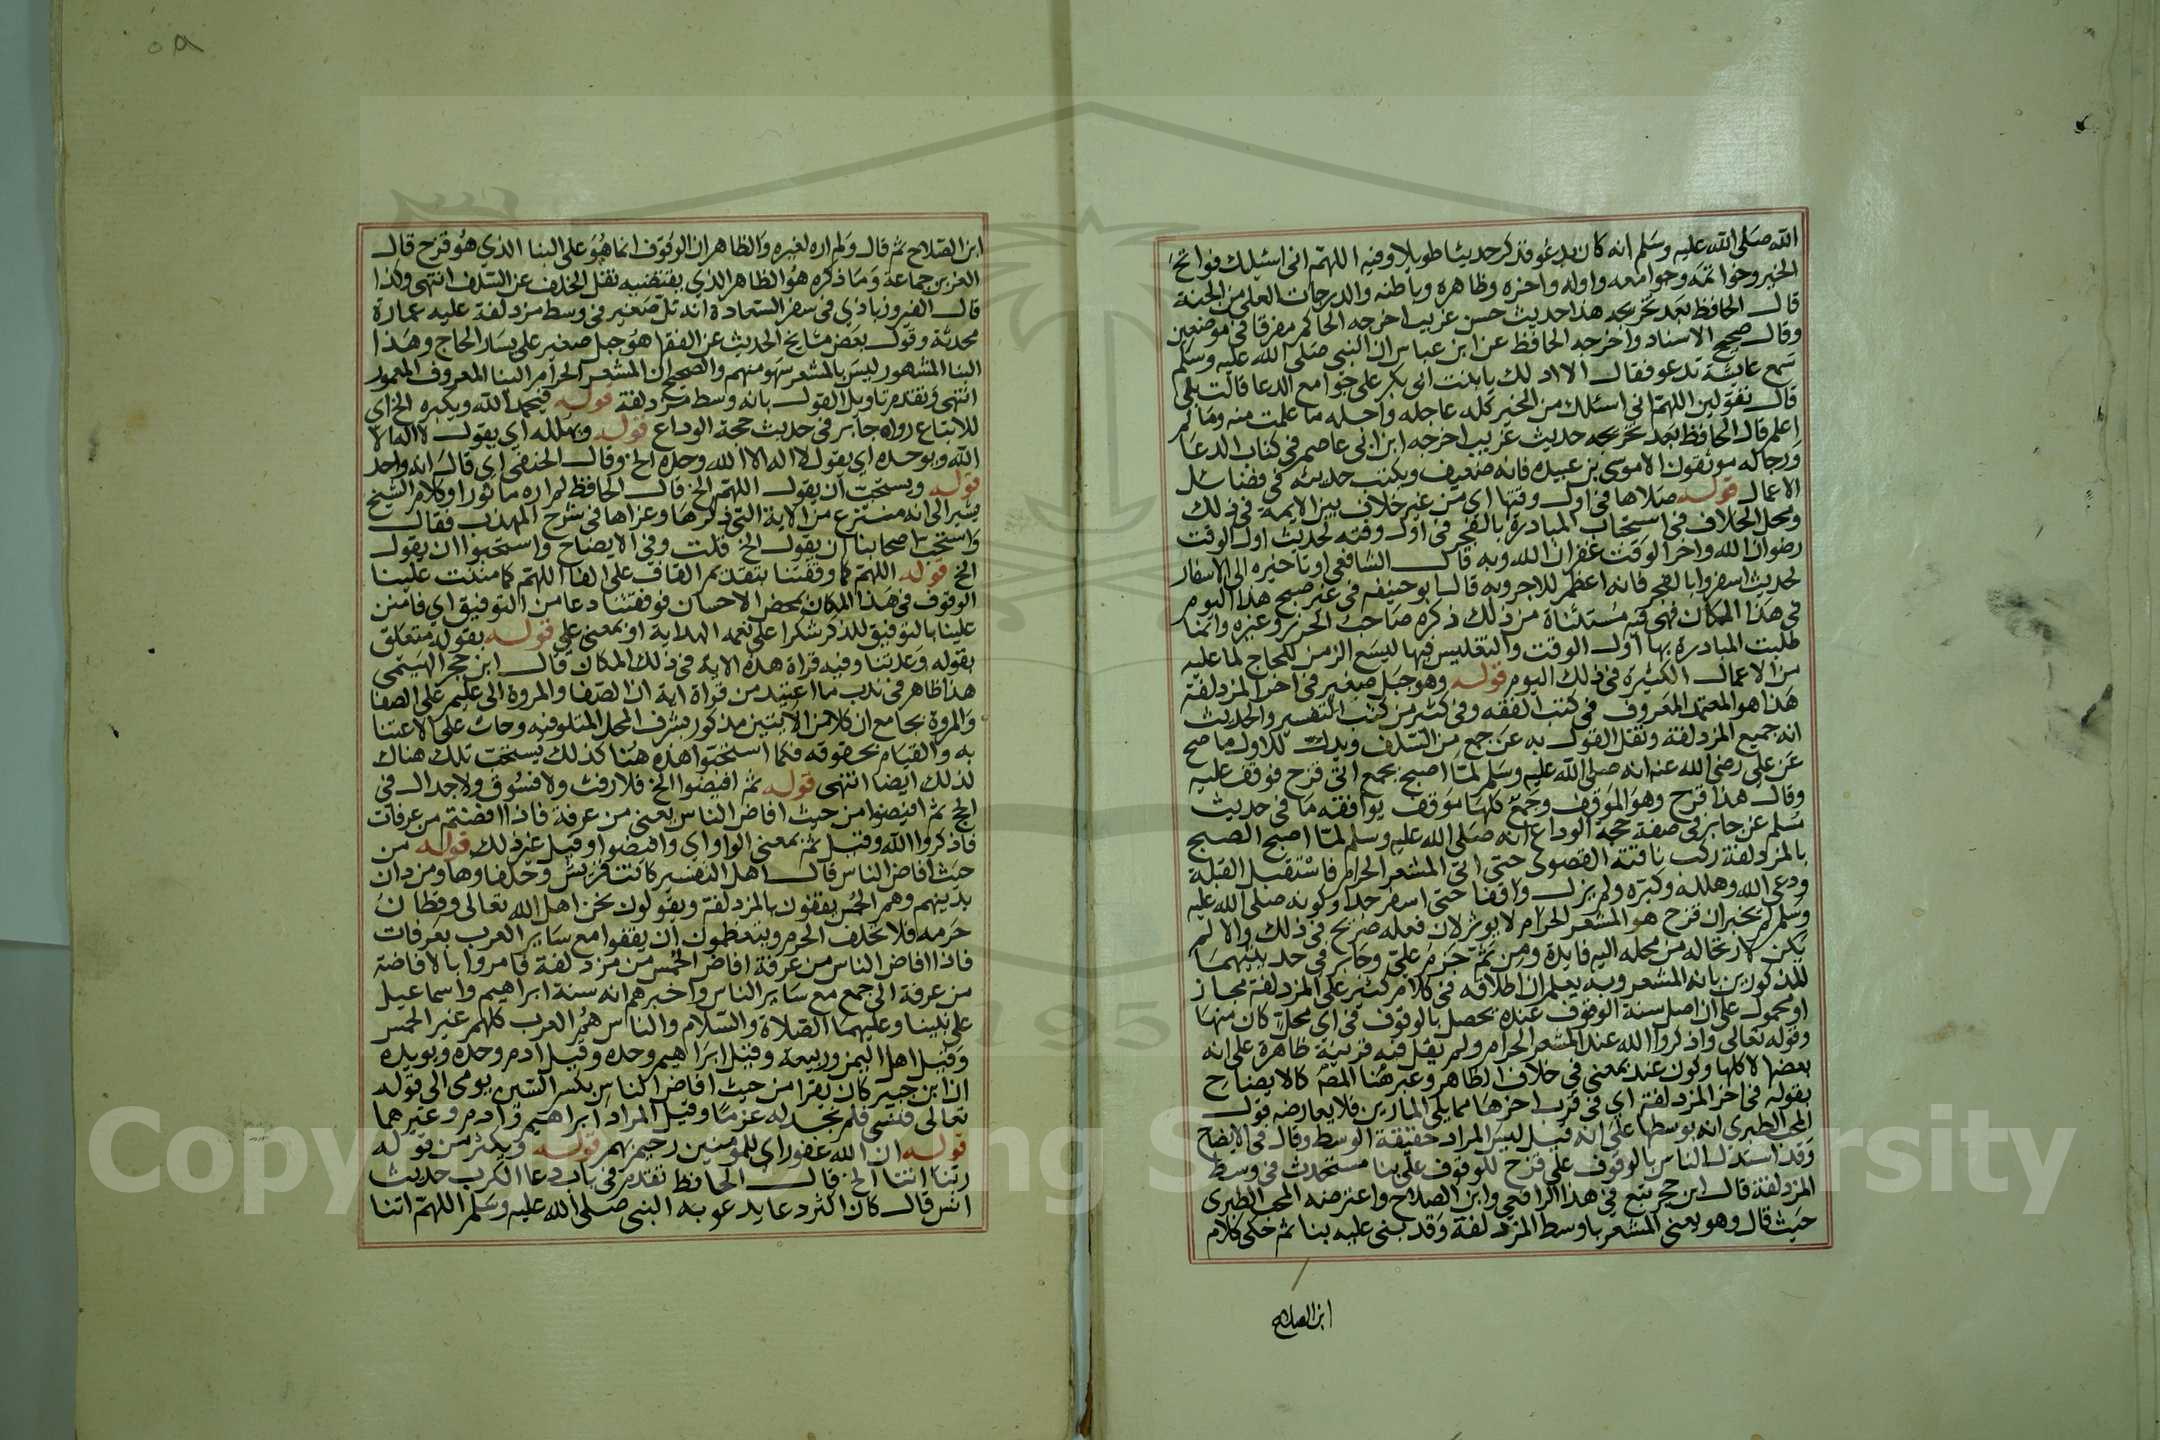 الله صلى الله عليه وسلم انه كان يدعو فذكر حديثا طويلا وفيه اللهم انى اسئلك فواتح
الخير وخواتمه وجوامعه واوله واخره وظاهره وباطنه والدرجات العلى من الجنة
قال الحافظ بعد تخريجه هذا حديث حسن غريب اخرجه الحاكم مفرقا فى موضعين
وقال صحيح الاسناد واخرجه الحافظ عن ابن عباس ان النبى صلى الله عليه وسلم
سمع عايشة تدعو فقال الا ادلك يا بنت ابى بكر على جوامع الدعا قالت بلى
قال تقولين اللهم انى اسئلك من الخير كله عاجله واجله ما علمت منه وما لم
اعلم قال الحافظ بعد تخريجه حديث غريب اخرجه ابن ابى عاصم فى كتاب الدعا
ورجاله موثقون الا موسى بن عبيده فانه ضعيف ويكتب حديثه فى فضائل
الاعمال قوله صلاها فى اول وقتها اى من غير خلاف بين الايمة فى ذلك
ومحل الخلاف فى استحباب المبادرة بالفجر فى اول وقته لحديث اول الوقت
رضوان الله واخر الوقت غفران الله وبه قال الشافعى او تاخيره الى الاسفار
لحديث اسفروا بالفجر فانه اعظم للاجر وبه قال ابو حنيفه فى غير صبح هذا اليوم
فى هذا المكان فهى فيه مستثناة من ذلك ذكره صاحب الحرز وغيره وانما
طلبت المبادرة بها اول الوقت والتغليس فيها ليسع الزمن للحاج لما عليه
من الاعمال الكثيرة فى ذلك اليوم قوله وهو جبل صغير فى اخر المزدلفة
هذا هو المعتمد المعروف فى كتب الفقه وفى كثير من كتب التفسير والحديث
انه جميع المزدلفة ونقل القول به عن جمع من السلف ويدل للاول ما صح
عن على رضى الله عنه انه صلى الله عليه وسلم لما اصبح بجمع اتى قزح فوقف عليه
وقال هذا قزح وهو الموقف وجمع كلها موقف يوافقه ما فى حديث
مسلم عن جابر فى صفة حجة الوداع انه صلى الله عليه وسلم لما اصبح الصبح
بالمزدلفة ركب ناقته القصوى حتى اتى المشعر الحرام فاستقبل القبلة
ودعى الله وهلله وكبره ولم يزل واقفا حتى اسفر جدا وكونه صلى الله عليه
وسلم لم يخبر ان قزح هو المشعر الحرام لا يوثر لان فعله صريح فى ذلك والا لم
يكن لارتحاله من محله اليه فايدة ومن ثم جزم على وجابر فى حديثيهما
المذكورين بانه المشعر وبه يعلم ان اطلاقه فى كلام كثير على المزدلفة مجاز
او محمول على ان اصل سنة الوقوف عنده يحصل بالوقوف فى اى محل كان منها
وقوله تعالى واذكروا الله عند المشعر الحرام ولم يقل فيه قرينة ظاهرة على انه
بعضها لا كلها وكون عند بمعنى فى خلاف الظاهر وعبر هنا المص كالايضاح
بقوله فى اخر المزدلفة اى فى قرب اخرها مما يلى المازمين فلا يعارضه قول
المحب الطبرى انه بوسطها على انه قيل ليس المراد حقيقة الوسط وقال فى الايضاح
وقد استبدل الناس بالوقوف على قزح للوقوف على بنا مستحدث فى وسط
المزدلفة قال ابن حجر تبع فى هذا الرافعى وابن الصلاح واعترضه المحب الطبرى
حيث قال وهو يعنى المشعر باوسط المزدلفة وقد بنى عليه بنا ثم حكى كلام
ابن الصلاح
ابن الصلاح ثم قال ولم اره لغيره والظاهر ان الوقوف انما هو على البنا الذي هو قزح قال
العز بن جماعة وما ذكره هو الظاهر الذي يقتضيه نقل الخلف عن السلف انتهى وكذا
قال الفيروزبادي فى سفر السعادة انه تل صغير فى وسط مزدلفة عليه عمارة
محدثة وقول بعض مشايخ الحديث عن الفقها هو جبل صغير على يسار الحاج وهذا
البنا المشهور ليس بالمشعر سهو منهم والصحيح ان المشعر الحرام البنا المعروف المعمور
انتهى وتقدم تاويل القول بانه وسط مزدلفة قوله فيحمد الله ويكبره الخ اى
للاتباع رواه جابر فى حديث حجة الوداع قوله ويهلله اى يقول لا اله الا
الله ويوحده اى يقول لا اله الا الله وحده الخ وقال الحنفى اى قال انه واحد
قوله ويستحب ان يقول اللهم الخ قال الحافظ لم اره ماثورا وكلام الشيخ
مشير الى انه منتزع من الاية التى ذكرها وعزاها فى شرح المهذب فقال
واستحب اصحابنا ان يقول الخ قلت وفى الايضاح واستحبوا ان يقول
الخ قوله اللهم كما وقفتنا بتقديم القاف على الفا اللهم كما مننت علينا
الوقوف فى هذا المكان بمحض الاحسان فوفقتنا دعا من التوفيق اى فامنن
علينا بالتوفيق للذكر شكرا على نعمه الهداية او بمعنى على قوله بقوله متعلق
بقوله وعدتنا وفيه قراة هذه الاية فى ذلك المكان قال ابن حجر الهيتمى
هذا ظاهر فى ندب ما اعتيد من قراة اية ان الصفا والمروة الى عليم على الصفا
والمروة بجامع ان كلا من الايتين مذكور بشرف المحل المتلو فيه وحاث على الاعتنا
به والقيام بحقوقه فكما استحبوا هذه هنا كذلك يستحب تلك هناك
لذلك ايضا انتهى قوله ثم افيضوا الخ فلا رفث ولا فسوق ولا جدال فى
الحج ثم افيضوا من حيث افاض الناس يعنى من عرفة فاذا افضتم من عرفات
فاذكروا الله وقيل ثم بمعنى الواو اى وافيضوا وقيل غير ذلك قوله من
حيث افاض الناس قال اهل التفسير كانت قريش وحلفاوها ومن دان
بدينهم وهم الحمس يقفون بالمزدلفة ويقولون نحن اهل الله تعالى وقطان
حرمه فلا نخلف الحرم ويتعظمون ان يقفوا مع ساير العرب بعرفات
فاذا افاض الناس من عرفة افاض الحمس من مزدلفة فامروا بالافاضة
من عرفة الى جمع مع ساير الناس واخبرهم انه سنة ابراهيم واسماعيل
على نبينا وعليهما الصلاة والسلام والناس هم العرب كلهم غير الحمس
وقيل اهل اليمن وربيعة وقيل ابراهيم وحده وقيل ادم وحده ويويده
ان ابن جبير كان يقرا من حيث افاض الناس بكسر السين يومى الى قوله
تعالى فنسى فلم نجد له عزما وقيل المراد ابراهيم وادم وغيرهما
قوله ان الله غفور اى للمومنين رحيم بهم قوله ويكثر من قوله
ربنا اتنا الخ قال الحافظ تقدم فى باب دعا الكرب حديث
انس قال كان اكثر دعا يدعو به النبى صلى الله عليه وسلم اللهم اتنا